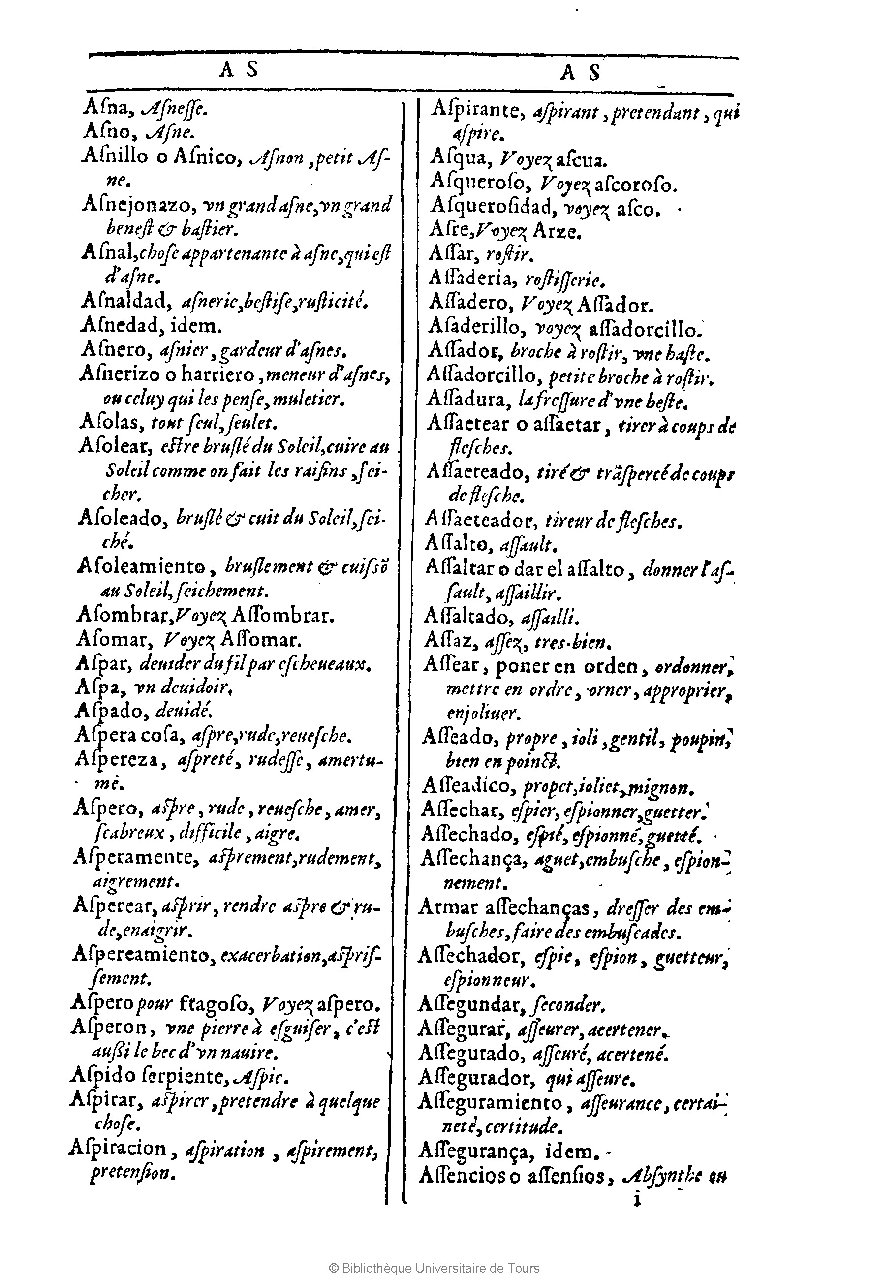 A S
Aſna, Aſneſſe.
Aſno, Aſne.
Aſnillo o Aſnico, Aſnon, petit Aſ-
ne.
Aſnejonazo, vn grand aſne, vn grand
beneſt & baſtier.
Aſnal, choſe appartenante à aſne, qui eſt
d'aſne.
Aſnaldad, aſnerie, beſtiſe, ruſticité.
Aſnedad, idem.
Aſnero, aſnier, gardeur d'aſnes.
Aſnerizo o harriero, meneur d'aſnes,
ou celuy qui les penſe, muletier.
Aſolas, tout ſeul, ſeulet.
Aſolear, eſtre bruſlé du Soleil, cuire au
Soleil comme on fait les raiſins, ſei-
cher.
Aſoleado, bruſlé & cuit du Soleil, ſei-
ché.
Aſoleamiento, bruſlement & cuiſsõ
au Soleil, ſeichement.
Aſombrar, Voyez Aſſombrar.
Aſomar, Voyez Aſſomar.
Aſpar, deuider du fil par eſcheueaux.
Aſpa, vn deuidoir.
Aſpado, deuidé.
Aſpera coſa, aſpre, rude, reueſche.
Aſpereza, aſpreté, rudeſſe, amertu-
me.
Aſpero, aſpre, rude, reueſche, amer,
ſcabreux, difficile, aigre.
Aſperamente, aſprement, rudement,
aigrement.
Aſperear, aſprir, rendre aſpre & ru-
de, enaigrir.
Aſpereamiento, exacerbation, aſpriſ-
ſement.
Aſpero pour fragoſo, Voyez aſpero.
Aſperon, vne pierre à eſguiſer, c'eſt
auſſi le bec d'vn nauire.
Aſpido ſerpiente, Aſpic.
Aſpirar, aſpirer, pretendre à quelque
choſe.
Aſpiracion, aſpiration, aſpirement,
pretenſion.
A S
Aſpirante, aſpirant, pretendant, qui
aſpire.
Aſqua, Voyez aſcua.
Aſqueroſo, Voyez aſcoroſo.
Aſqueroſidad, voyez aſco.
Aſre, Voyez Arze.
Aſſar, roſtir.
Aſſaderia, roſtiſſerie.
Aſſadero, Voyez Aſſador.
Aſaderillo, voyez aſſadorcillo.
Aſſador, broche à roſtir, vne haſte.
Aſſadorcillo, petite broche à roſtir.
Aſſadura, la freſſure d'vne beſte.
Aſſaetear o aſſaetar, tirer à coups de
fleſches.
Aſſaeteado, tiré & trãſpercé de coups
de fleſche.
Aſſaeteador, tireur de fleſches.
Aſſalto, aſſault.
Aſſaltar o dar el aſſalto, donner l'aſ-
ſault, aſſaillir.
Aſſaltado, aſſailli.
Aſſaz, aſſez, tres-bien.
Aſſear, poner en orden, ordonner,
mettre en ordre, orner, approprier,
enjoliuer.
Aſſeado, propre, ioli, gentil, poupin,
bien en poinct.
Aſſeadico, propet, ioliet, mignon.
Aſſechar, eſpier, eſpionner, guetter.
Aſſechado, eſpié, eſpionné, guetté.
Aſſechança, aguet, embuſche, eſpion-
nement.
Armar aſſechanças, dreſſer des em-
buſches, faire des embuſcades.
Aſſechador, eſpie, eſpion, guetteur,
eſpionneur.
Aſſegundar, ſeconder.
Aſſegurar, aſſeurer, acertener.
Aſſegurado, aſſeuré, acertené.
Aſſegurador, qui aſſeure.
Aſſeguramiento, aſſeurance, certai-
neté, certitude.
Aſſegurança, idem.
Aſſencios o aſſenſios, Abſynthe ou
i
© Bibliothèque Universitaire de Tours